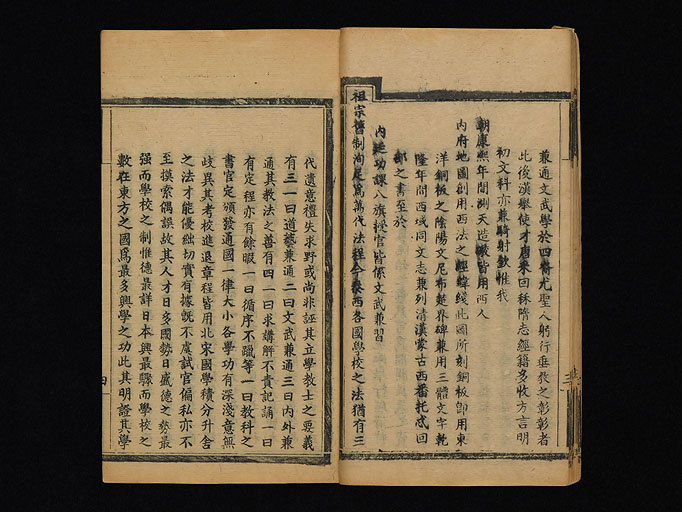 兼通文武學於四裔尤聖人躬行垂教之彰彰者
此後漢舉使才唐來回秝隋志經籍多收方言明
初文科亦兼騎射欽惟我
朝康熙年間測天造皆用西人
內府地圖創用西法之經緯綫此圖所刻銅板卽用東
洋銅板之陰陽文尼布楚界碑兼用三體文字乾
隆年間西域同文志兼列清漢蒙古西番托忒回
部之書至於
內廷功課八旗授官皆係文武兼習
祖宗舊制洵足爲萬代法程今泰西各國學校之法猶有三
代遺意禮失求野或尚非誣其立學教士之要義
有三一曰道藝兼通二曰文武兼通三曰內外兼
通其教法之善有四一曰求講解不責記誦一曰
有定程亦有餘暇一曰循序不躐等一曰教科之
書官定頒發通國一律大小各學功有深淺意無
歧異其考校進退章程皆用北宋國學積分升舍
之法才能優絀切實有據既不虞試官偏私亦不
至摸索偶誤故其人才日多國勢日盛德之勢最
强而學校之制惟德最詳日本興最驟而學校之
數在東方之國爲最多興學之功此其明證其學
三
四